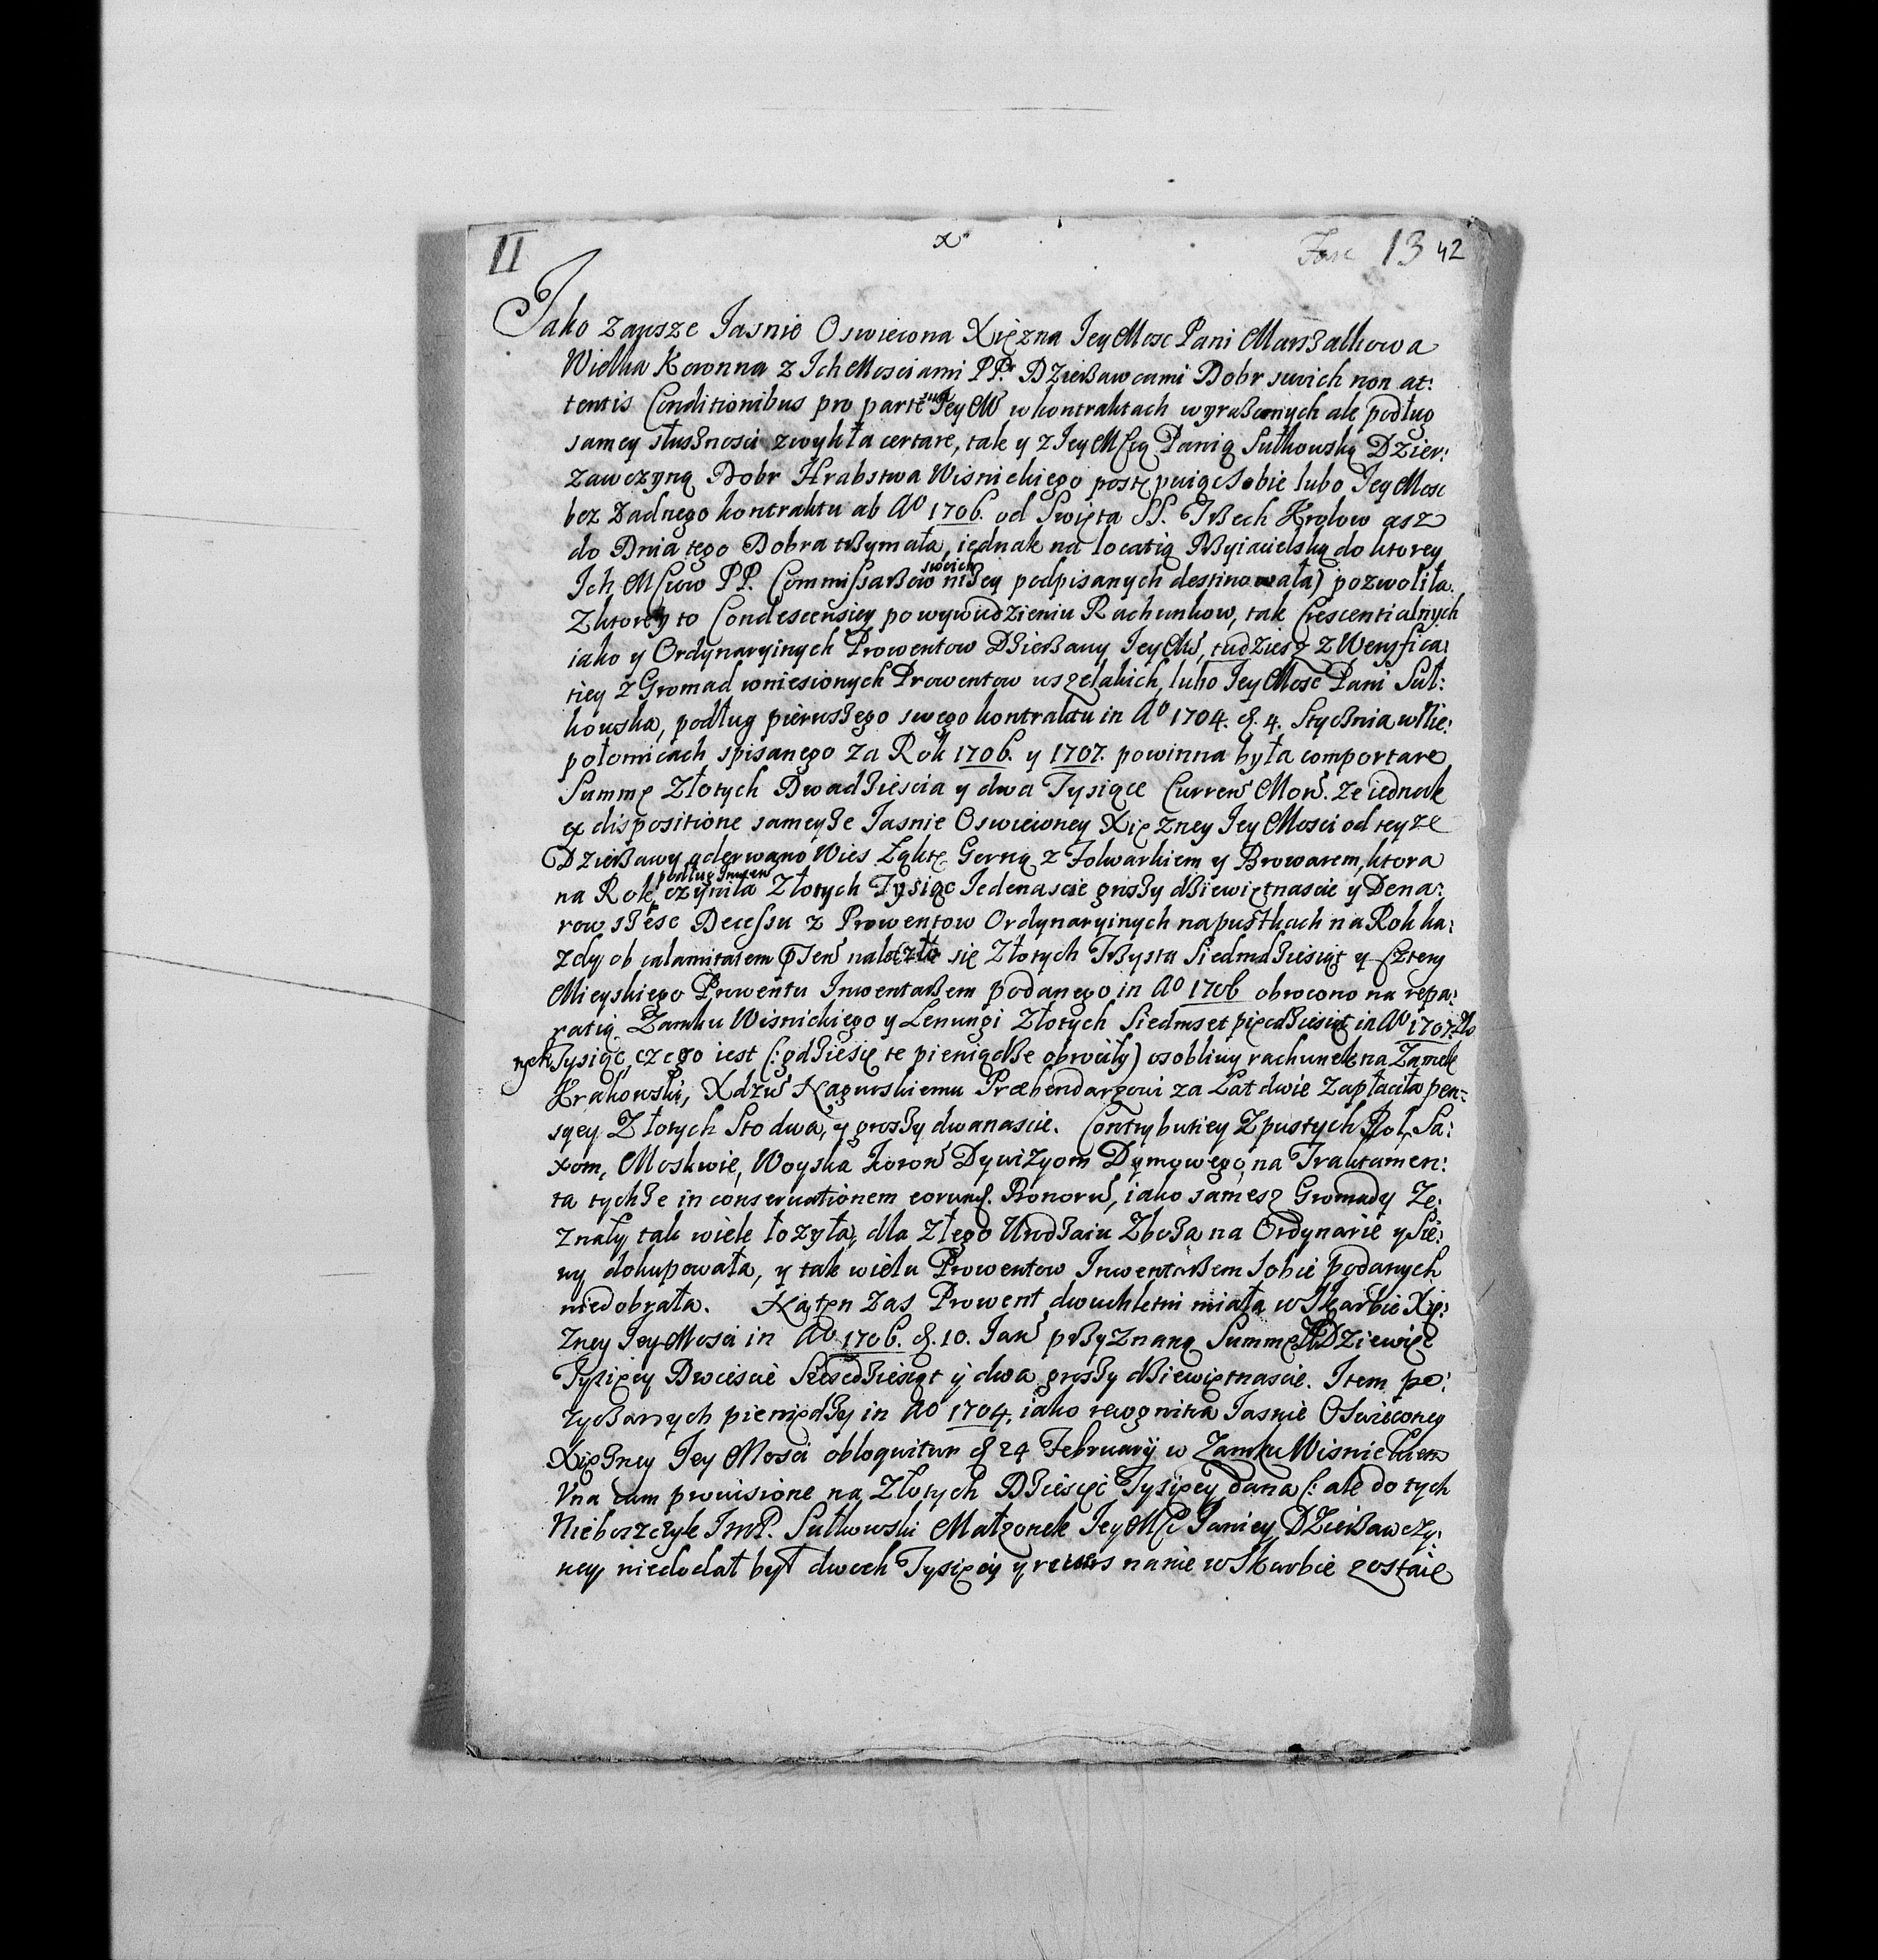 II x Fasc 13 42
Jako zawsze Jasnie Oswiecona Xięzna JeyMosc Pani Marszałkowa
Wielka Koronna z IchMosciami PP. Dzierzawcami Dobr swich non at:
tentis Conditionibus pro parte sua JeyM w kontraktach wyrazonych ale podług
samey słusznosci zwykła certare, tak y z JeyMscą Panią Sułkowską Dzier:
zawczyną Dobr Hrabstwa Wisnickiego postępuiąc sobie lubo JeyMosc
bez zadnego kontraktu ab Aº 1706. od Swięta SS. Trzech Krolow asz
do Dnia tego Dobra trzymała, iednak na locatią Przyiacielską do ktorey
Ich Msciow PP. Commissarzow swoich nizey podpisanych destinowała) pozwoliła.
Z ktorey to Condescensiey po wywiedzieniu Rachunkow, tak Crescentialnych
iako y Ordynaryinych Prowentow Dzierzawy JeyM, tudziesz z Weryfica:
tiey z Gromad wniesionych Prowentow wszelakich, lubo JeyMosc Pani Suł:
kowska, podług pierwszego swego kontraktu in Aº 1704. d. 4. Stycznia w Nie:
połomicach spisanego za Rok 1706. y 1707. powinna była comportare
Summę Złotych Dwadziescia y dwa Tysiące Curren Mon. ze iednak
ex dispositione sameyze Jasnie Oswieconey Xięzney Jey Mosci od teyze
Dzierzawy oderwano Wies Łąktę Gorną z Folwarkiem y Browarem, ktora
na Rok podług Inwen czyniła Złotych Tysiąc Jedenascie groszy dziewiętnascie y Dena:
row szesc Decessu z Prowentow Ordynaryinych na pustkach na Rok ka:
zdy ob calamitatem nalazło się Złotych Trzysta Siedmdziesiąt y Cztery
Mieyskiego Prowentu Inwentarzem podanego in Aº 1706 obrocono na repa:
ratią Zamku Wisnickiego y Lenungi Złotych Siedmset pięcdziesiąt in Aº 1707. Zło
tych Tysiąc, czego iest (: gdzie się te pieniądze obrociły) osobliwy rachunek na Zamek
Krakowski, Xdzu Nagurskiemu Præbendarzowi za Lat dwie zapłaciła pen=
syey Złotych Sto dwa, y groszy dwanascie. Contrybutiey z pustych Rol, Sa:
xom, Moskwie, Woyska Koron Dywizyom Dymowego, na Traktamen:
ta tychze in conservationem eorund. Bonoru, iako samesz Gromady Ze:
znały tak wiele łozyła, dla złego Urodzaiu Zboza na Ordynarie y Sie:
wy dokupowała, y tak wielu Prowentow Inwentarzem sobie podanych
niedobrała. Na ten zas Prowent dwuchletni miała w Skarbie Xię:
zney JeyMosci in Aº 1706. d. 10. Jan przyznaną Summę Dziewięc
Tysięcy Dwiescie Szescdziesiąt y dwa groszy dziewiętnascie. Item po:
zyczanych pieniędzy in Aº 1704, iako recognitia Jasnie Oswieconey
Xięzney Jey Mosci obloquitur d 24 February w Zamku Wisnickiem
Una cum provisione na Złotych Dziesięc Tysięcy dana (: ale do tych
Nieboszczyk ImP. Sułkowski Małzonek JeyMsci Paniey Dzierzawczy:
ney niedodał był dwoch Tysięcy y recurs na nie w Skarbie zostaie